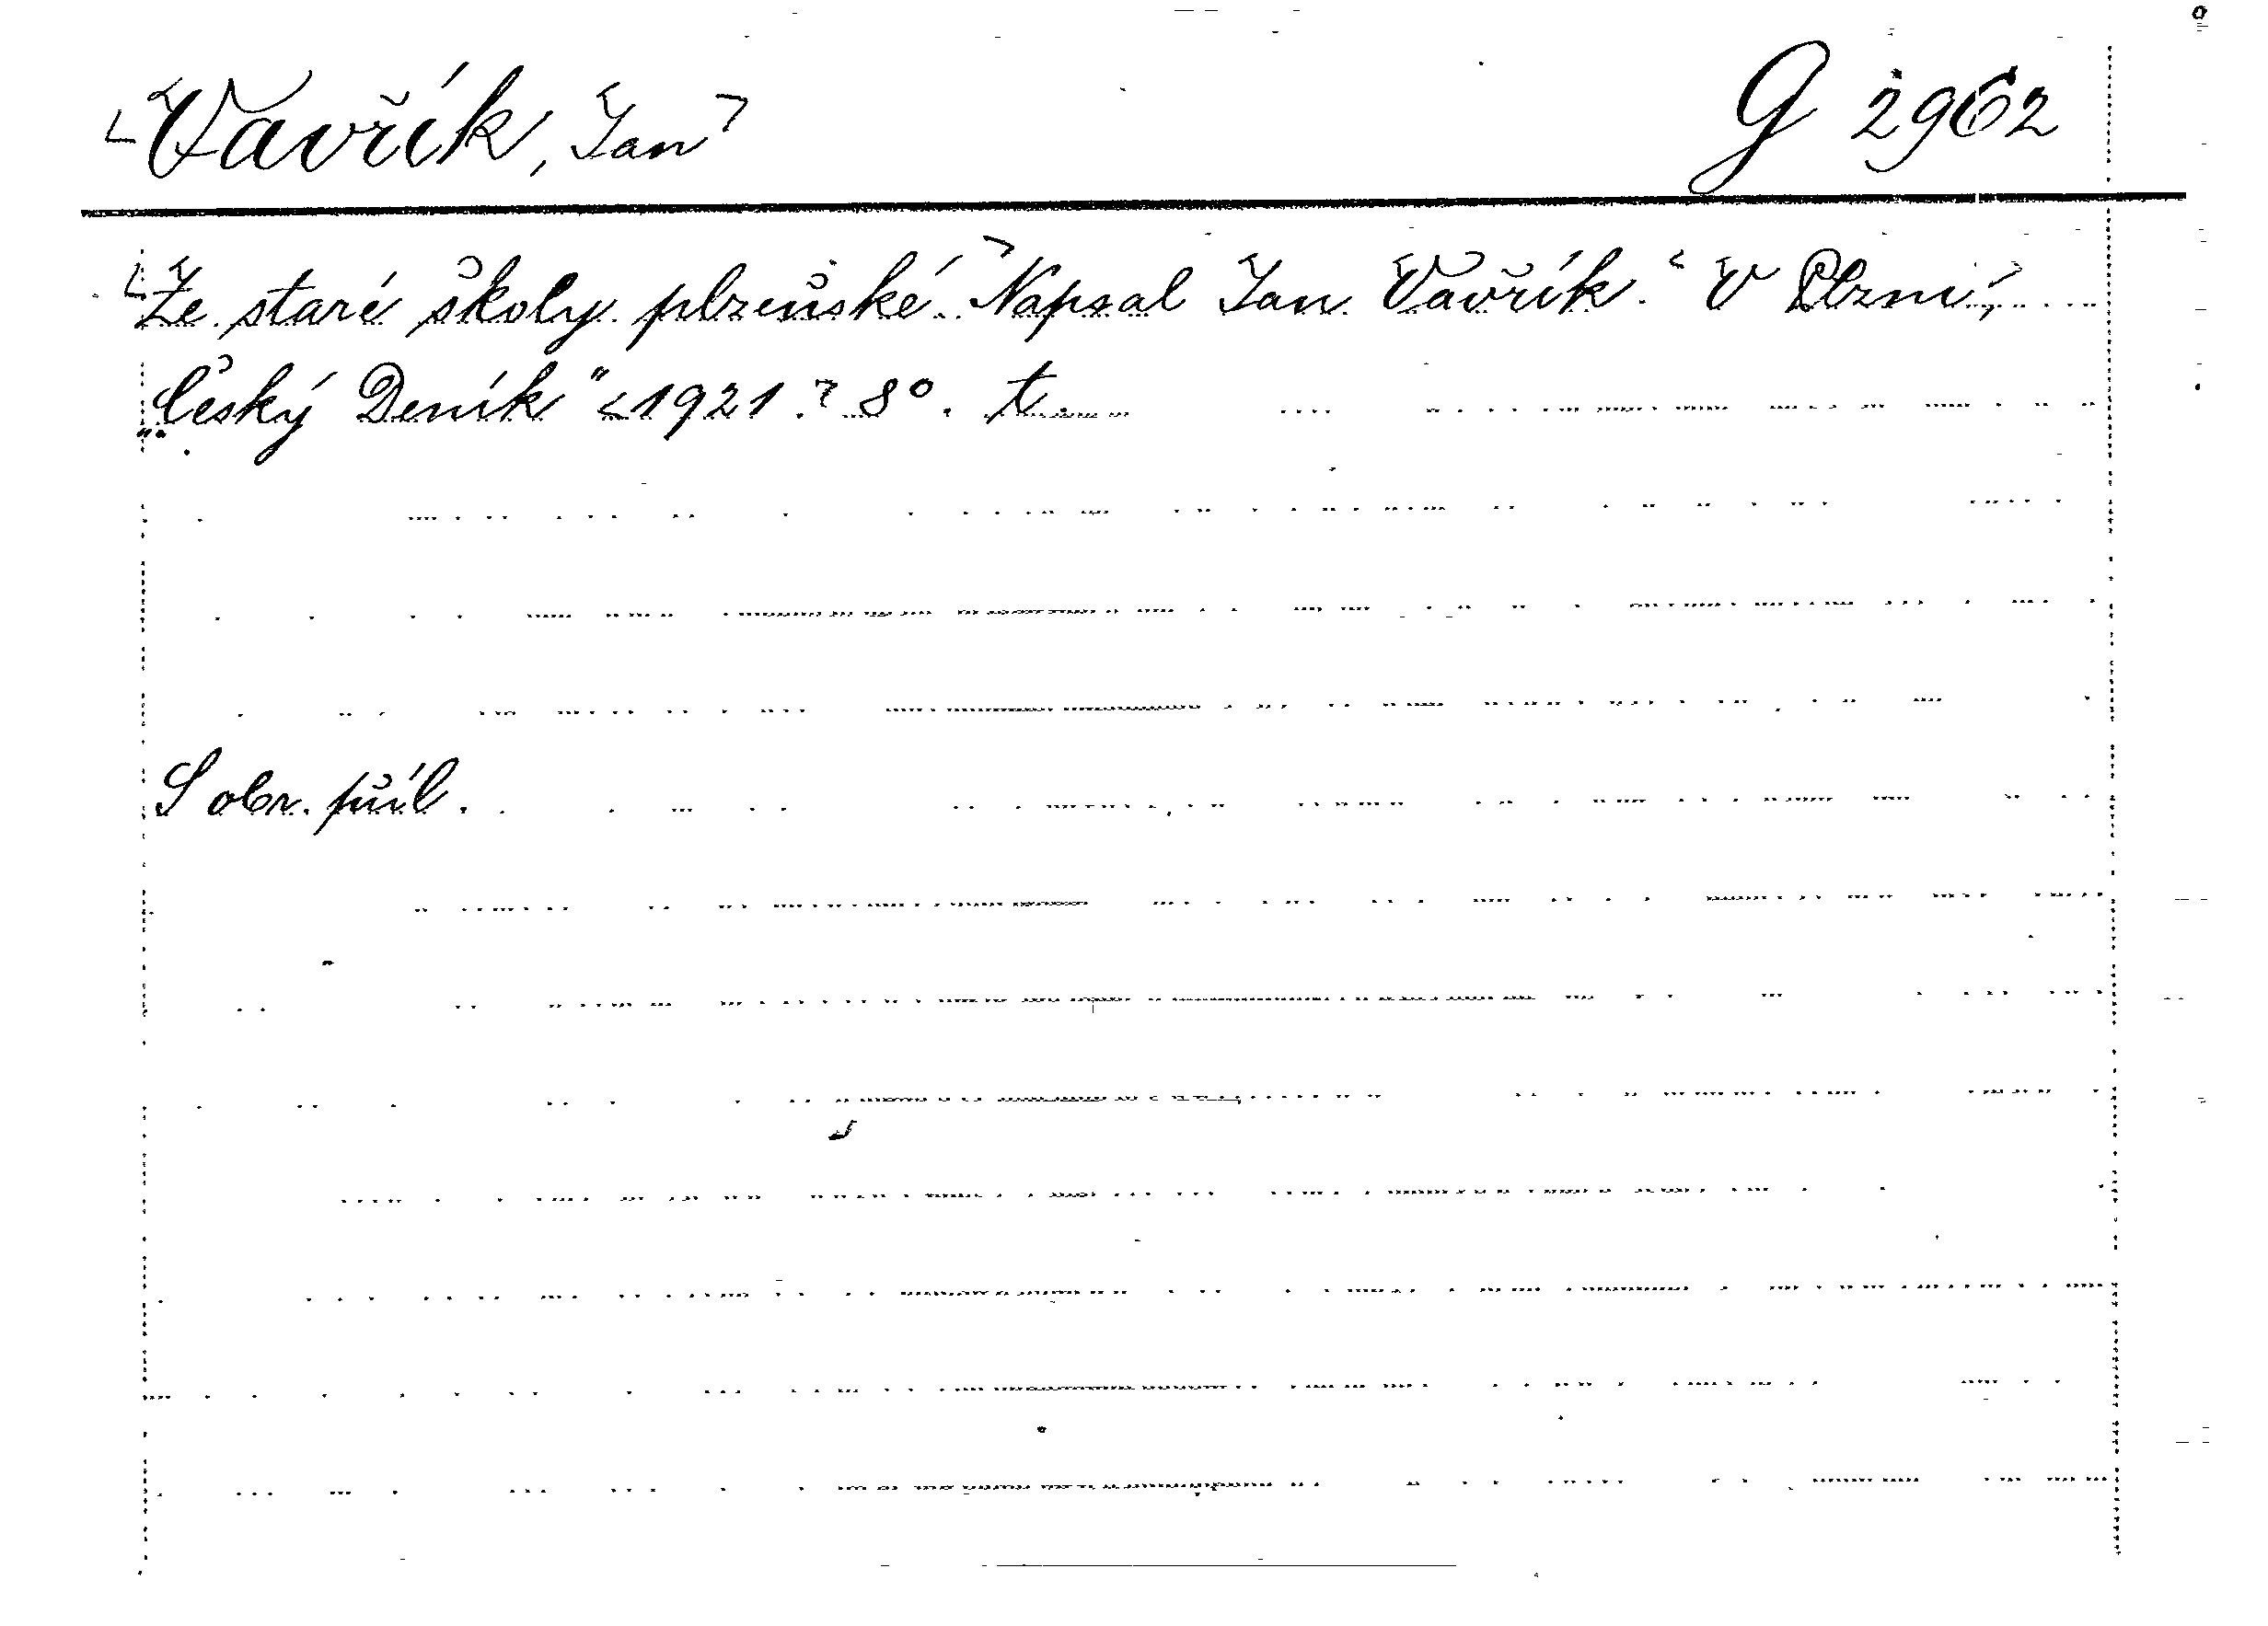 Vavřík, Jan G 2962
Ze staré školy plzeňské. Napsal Jan Vavřík. V Plzni,
„Český Deník" 1921. 8°. t.
S obr. příl.